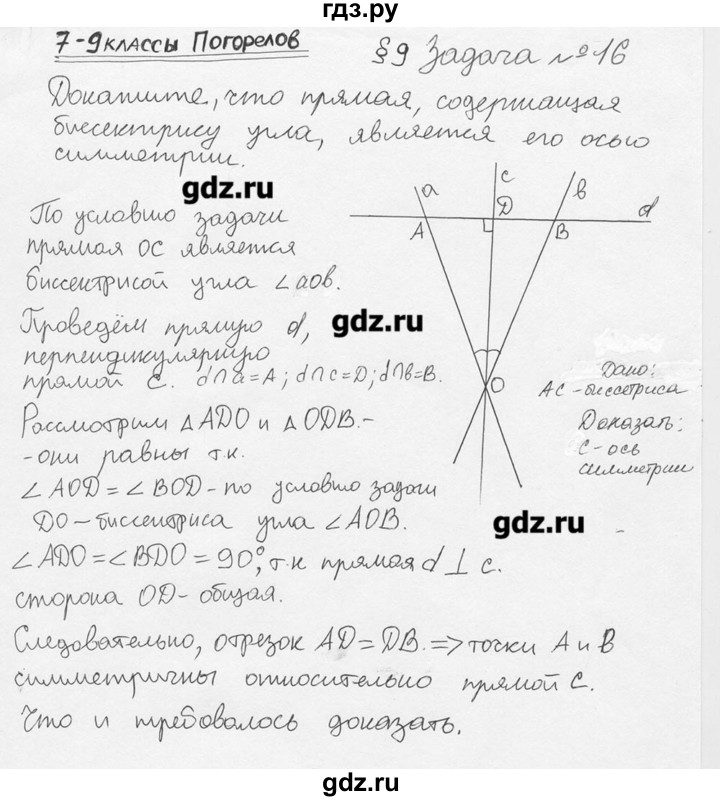 гдз.ру
7-9 классы Погорелов
§9 Задача №16
Докажите, что прямая, содержащая
биссектрису угла, является его осью
симметрии.
gdz.ru
По условию задачи
прямая ОС является
биссектрисой угла ∠aob.
Проведём прямую d,
gdz.ru
перпендикулярную
прямой C. d∩a=A; d∩c=D; d∩b=B.
a
c
b
d
A
D
B
O
Дано:
AC - биссектриса
Доказать:
C - ось
симметрии
Рассмотрим ΔADO и ΔODB.-
- они равны т.к.
∠AOD = ∠BOD - по условию задачи
DO - биссектриса угла ∠AOB.
gdz.ru
∠ADO = ∠BDO = 90°, т.к прямая d ⊥ c.
сторона OD - общая.
Следовательно, отрезок AD = DB. => точки A и B
симметричны относительно прямой C.
Что и требовалось доказать.
gdz.ru